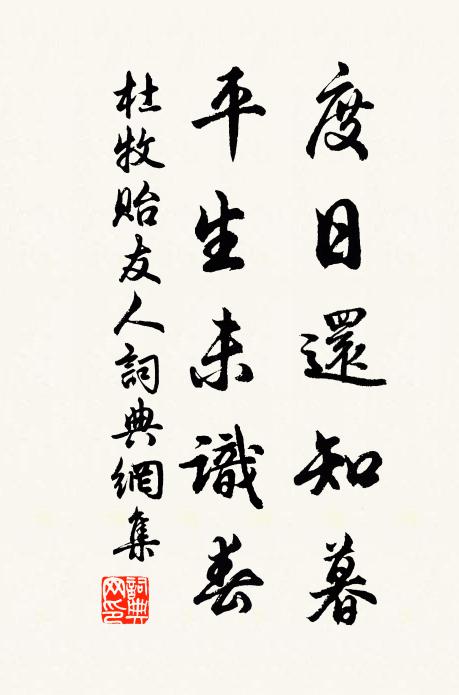 度日還知暮
平生未識春
杜牧貽友人詞典網集
詞典网印